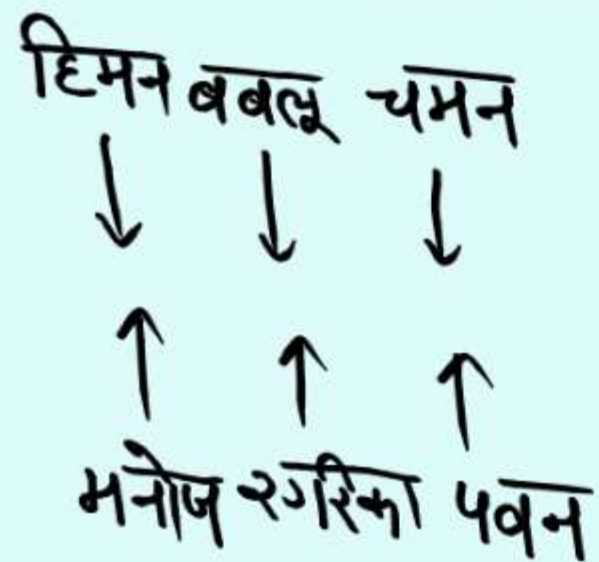 हिमन बबलू चमन
मनोज पवन